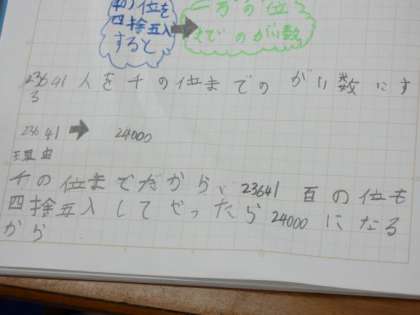 の位を
四捨五入
すると
一万の位
までのがい数
23641人を千の位までのがい数にす
る
23641 → 24000
理由
千の位までだから、23641 百の位を
四捨五入してせったら24000になる
から